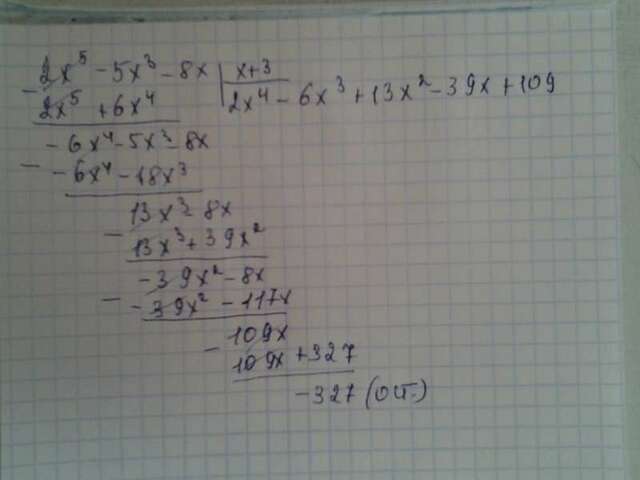 2x⁵ - 5x³ - 8x | x+3
- 2x⁵ + 6x⁴ | 2x⁴ - 6x³ + 13x² - 39x + 109
- 6x⁴ - 5x³ - 8x
- - 6x⁴ - 18x³
13x³ - 8x
- 13x³ + 39x²
- 39x² - 8x
- - 39x² - 117x
109x
- 109x + 327
- 327 (ост.)